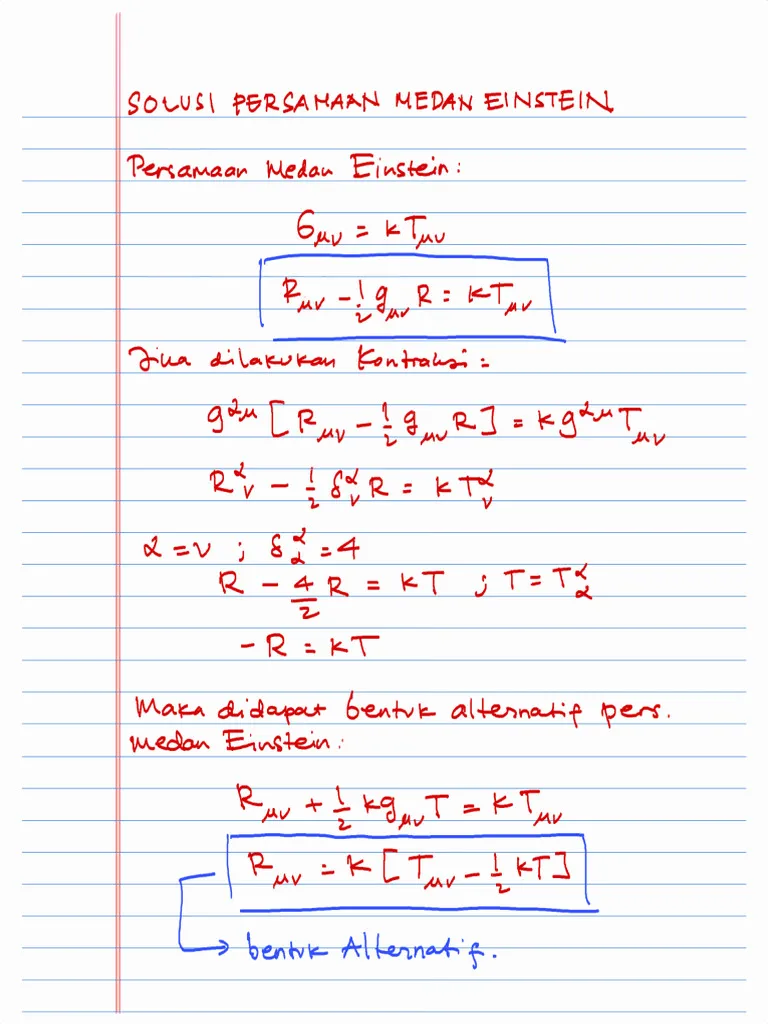 SOLUSI PERSAMAAN MEDAN EINSTEIN
Persamaan Medan Einstein:
G_μν = kT_μν
R_μν - 1/2 g_μν R = kT_μν
Jika dilakukan kontraksi:
g^αμ [R_μν - 1/2 g_μν R] = kg^αμ T_μν
R^α_ν - 1/2 δ^α_ν R = kT^α_ν
α = ν ; δ^α_α = 4
R - 4/2 R = kT ; T = T^α_α
-R = kT
Maka didapat bentuk alternatif pers.
medan Einstein:
R_μν + 1/2 kg_μν T = kT_μν
R_μν = k [T_μν - 1/2 kT]
bentuk Alternatif.